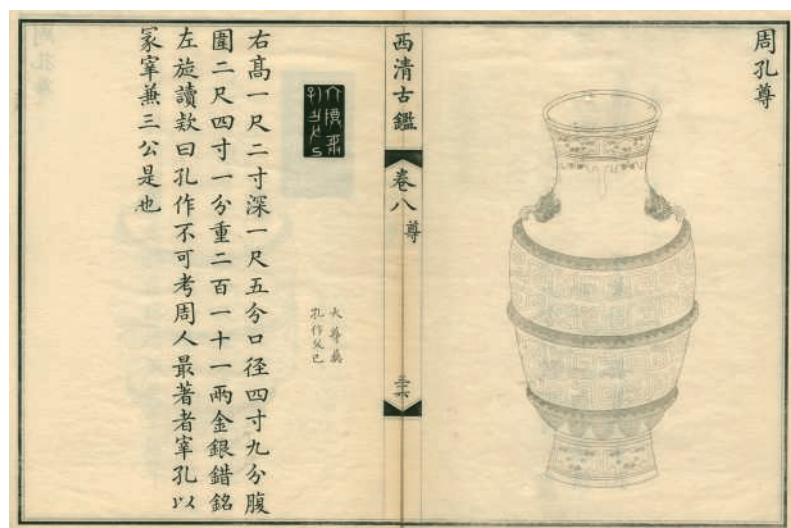 周孔尊
西清古鑑
卷八
尊
孔作父己
右髙一尺二寸深一尺五分口徑四寸九分腹
圍二尺四寸一分重二百一十一兩金銀錯銘
左旋讀欵曰孔作不可考周人最著者宰孔以
冢宰兼三公是也